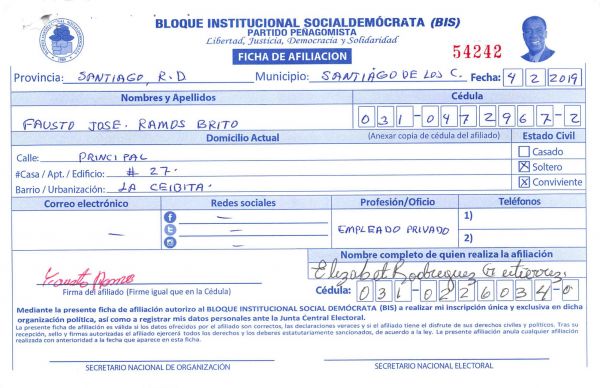 BLOQUE INSTITUCIONAL SOCIALDEMÓCRATA (BIS)
PARTIDO PEÑAGOMISTA
Libertad, Justicia, Democracia y Solidaridad
FICHA DE AFILIACION
54242
Provincia: SANTIAGO, R.D Municipio: SANTIAGO DE LOS C. Fecha: 4 2 2019
Nombres y Apellidos Cédula
FAUSTO JOSE. RAMOS BRITO 031-0472967-2
Domicilio Actual (Anexar copia de cédula del afiliado) Estado Civil
Calle: PRINCIPAL Casado
#Casa / Apt. / Edificio: # 27. X Soltero
Barrio / Urbanización: LA CEIBITA. X Conviviente
Correo electrónico Redes sociales Profesión/Oficio Teléfonos
— f — EMPLEADO PRIVADO 1)
— 2)
—
Nombre completo de quien realiza la afiliación
Fausto Ramos Elizabet Rodreguez Gutierrez.
Firma del afiliado (Firme igual que en la Cédula) Cédula: 031-0226034-0
Mediante la presente ficha de afiliación autorizo al BLOQUE INSTITUCIONAL SOCIAL DEMÓCRATA (BIS) a realizar mi inscripción única y exclusiva en dicha
organización política, así como a registrar mis datos personales ante la Junta Central Electoral.
La presente ficha de afiliación es válida si los datos ofrecidos por el afiliado son correctos, las declaraciones veraces y si el afiliado tiene el disfrute de sus derechos civiles y políticos. Tras su
recepción, sello y firmas autorizadas el afiliado ejercerá todos los derechos y los deberes estatutariamente sancionados, de acuerdo a la ley. La presente afiliación anula cualquier afiliación
realizada con anterioridad a la fecha que aparece en esta ficha.
SECRETARIO NACIONAL DE ORGANIZACIÓN SECRETARIO NACIONAL ELECTORAL